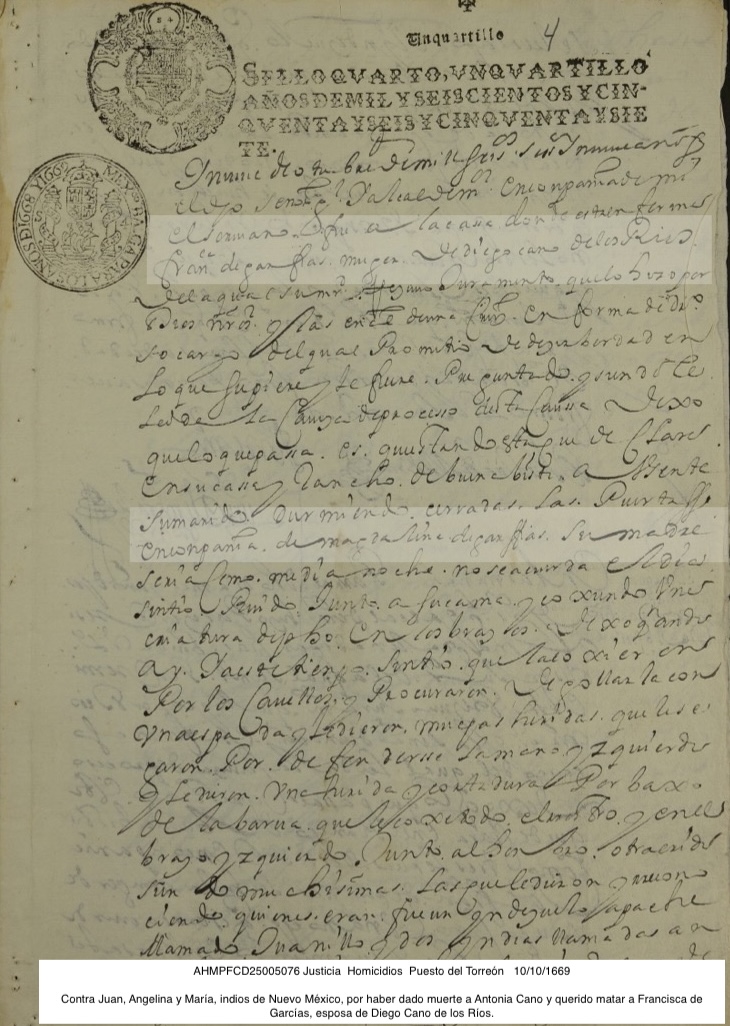 Unquartillo 4
SELLO QVARTO, VN QVARTILLO
AÑOS DE MIL Y SEISCIENTOS Y CIN-
QVENTA Y SEIS Y CINQVENTA Y SIE
TE.
En nuue de otubre de mill y seis.os
el dho Señor
el sommano. fue a la casa donde esta enferma
fran.ca de garssias. muger. de diego cano de los Rios.
de la qual su mrd. Juramento. que lo hiso por
Dios nro s.r y la s.ta cruz. en forma de dro.
so cargo del qual Prometio de desir berdad en
lo que supiere y le fuere. Preguntado. y siendole
leida la Caueza de prosseso desta Caussa Dixo
que lo que passa. es. que estando esta que declara
en su cassa y Rancho. de buena bista. a Ussente
su marido. Durmiendo. cerradas. las. Puertas.
en conpañia. de magdalena de garssias. su madre
seria Como. media noche. no se acuerda el dia
sintio Ruido. Junto. a su cama. y coxiendo Una
criatura de pho. En los brasos. Dixo
ay. Y a este tiempo. Sintio. que la coxieron
Por los Cauellos. y Procuraron. Degollarla con
Una espada y le dieron. muchas heridas. que le se
garon. Por. defenderse la mano. yzquierda
y le dieron. Una herida y cortadura. Por baxo
de la barua. que le coxe todo. el rostro. y en el
braso yzquierdo. Junto. al hombro. otra
siendo muchisimas. Las que le dieron y recono
ciendo. quienes. eran. fue un yndesuelo apache
llamado. Juanillo y dos yndias llamadas an
AHMPFCD25005076 Justicia Homicidios Puesto del Torreón 10/10/1669
Contra Juan, Angelina y María, indios de Nuevo México, por haber dado muerte a Antonia Cano y querido matar a Francisca de
Garcías, esposa de Diego Cano de los Ríos.